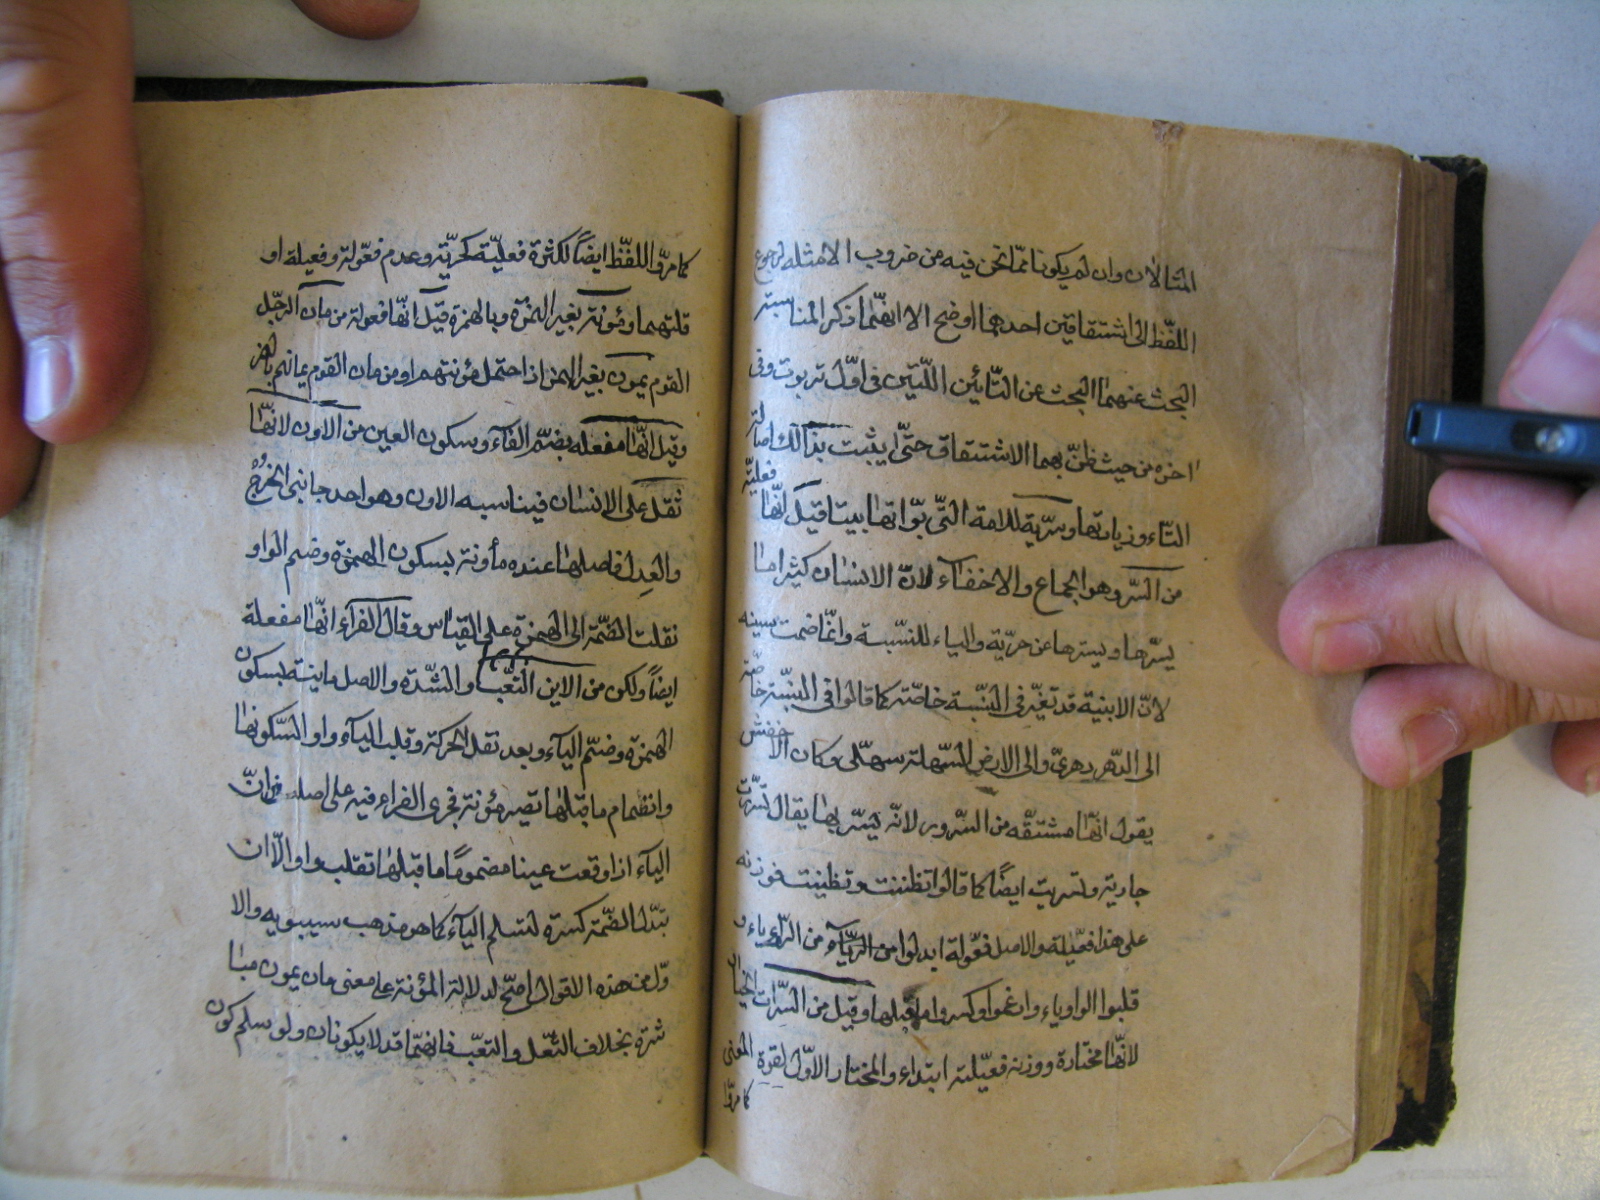 المثالان وان لم يكونا مما نحن فيه من ضروب الامثله لرجوع
اللفظ الى اشتقاقين احدهما اوضح الا انهما ذكر المناسبة
البحث عنهما البحث عن التائين اللتين فى اول تربوت وفى
اخره من حيث ظن بهما الاشتقاق حتى يثبت بذالك اصالة
التاء وزيادتها وسرية للامة التى بواتها بيتا قيل انها فعلية
من السر وهو الجماع والاخفاء لان الانسان كثيرا ما
يسرها ويسترها عن حرية والياء للنسبة وانما ضمت سينه
لان الابنية قد تغير فى النسبة خاصة كما قالوا فى النسبة خاصة
الى الدهر دهرى والى الارض السهلة سهلى وكان الاخفش
يقول انها مشتقه من السرور لانه يسر بها يقال تسررت
جارية وتسريت ايضا كما قالوا تظننت وتظنيت فوزنه
على هذا فعيلة والاصل فعولة ابدلوا من الراء ياء و
قلبوا الواو ياء وادغموا وكسروا ما قبلها وقيل من السرات الخيار
لانها مختارة ووزنه فعيلة ابتداء والمختار الاول لقوة المعنى
كما مر و
كما مر واللفظ ايضا لكثرة فعلية كحرية وعدم فعولة وفعيلة او
قلتهما ومؤنة بغير الهمزة وبالهمزة قيل انها فعولة من مان الرجل
القوم يمون بغير الهمز اذا احتمل مؤنتهم او من مان القوم يمانهم بالهمز
وقيل انها مفعله بضم الفاء وسكون العين من الاون لانها
ثقل على الانسان فيناسبه الاون وهو احد جانبى الخرج
والعدل فاصلها عنده مأونة بسكون الهمزة وضم الواو
نقلت الضمة الى الهمزة على القياس وقال الفراء انها مفعلة
ايضا ولكن من الاين التعب والشدة والاصل ماينة بسكون
الهمزة وضم الياء وبعد نقل الحركة وقلب الياء واو السكونها
وانضمام ما قبلها تصير مؤنة فجرى الفراء فيه على اصله فى ان
الياء اذا وقعت عينا مضموما ما قبلها تقلب واوا لا ان
تبدل الضمة كسرة لتسلم الياء كما هو مذهب سيبويه والا
ول من هذه الاقوال اصح لدلالة المؤنة على معنى مان يمون مبا
شرة بخلاف الثقل والتعب فانهما قد لا يكونان ولو سلم كون